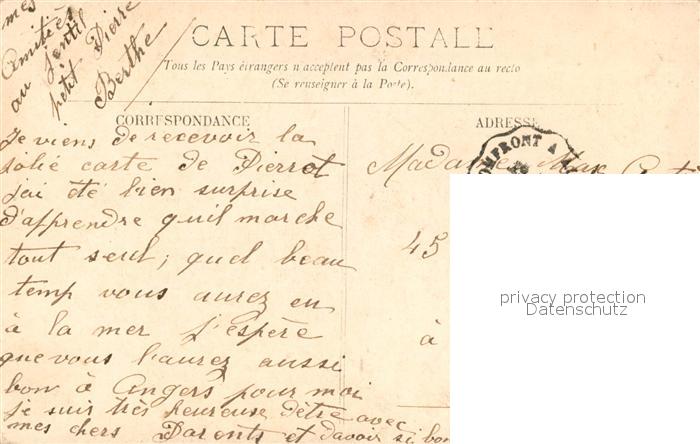 mes
Amitiés
au gentil
petit Pierre
Berthe
CARTE POSTALE
Tous les Pays étrangers n'acceptent pas la Correspondance au recto
(Se renseigner à la Poste).
CORRESPONDANCE
Je viens de recevoir la
jolie carte de Pierrot
j'ai été bien surprise
d'apprendre qu'il marche
tout seul; quel beau
temp vous aurez eu
à la mer j'espère
que vous l'aurez aussi
bon à Angers pour moi
je suis très heureuse d'être avec
mes chers Parents et d'avoir si bon
ADRESSE
DOMFRONT A
Madame Max
45
à
privacy protection
Datenschutz